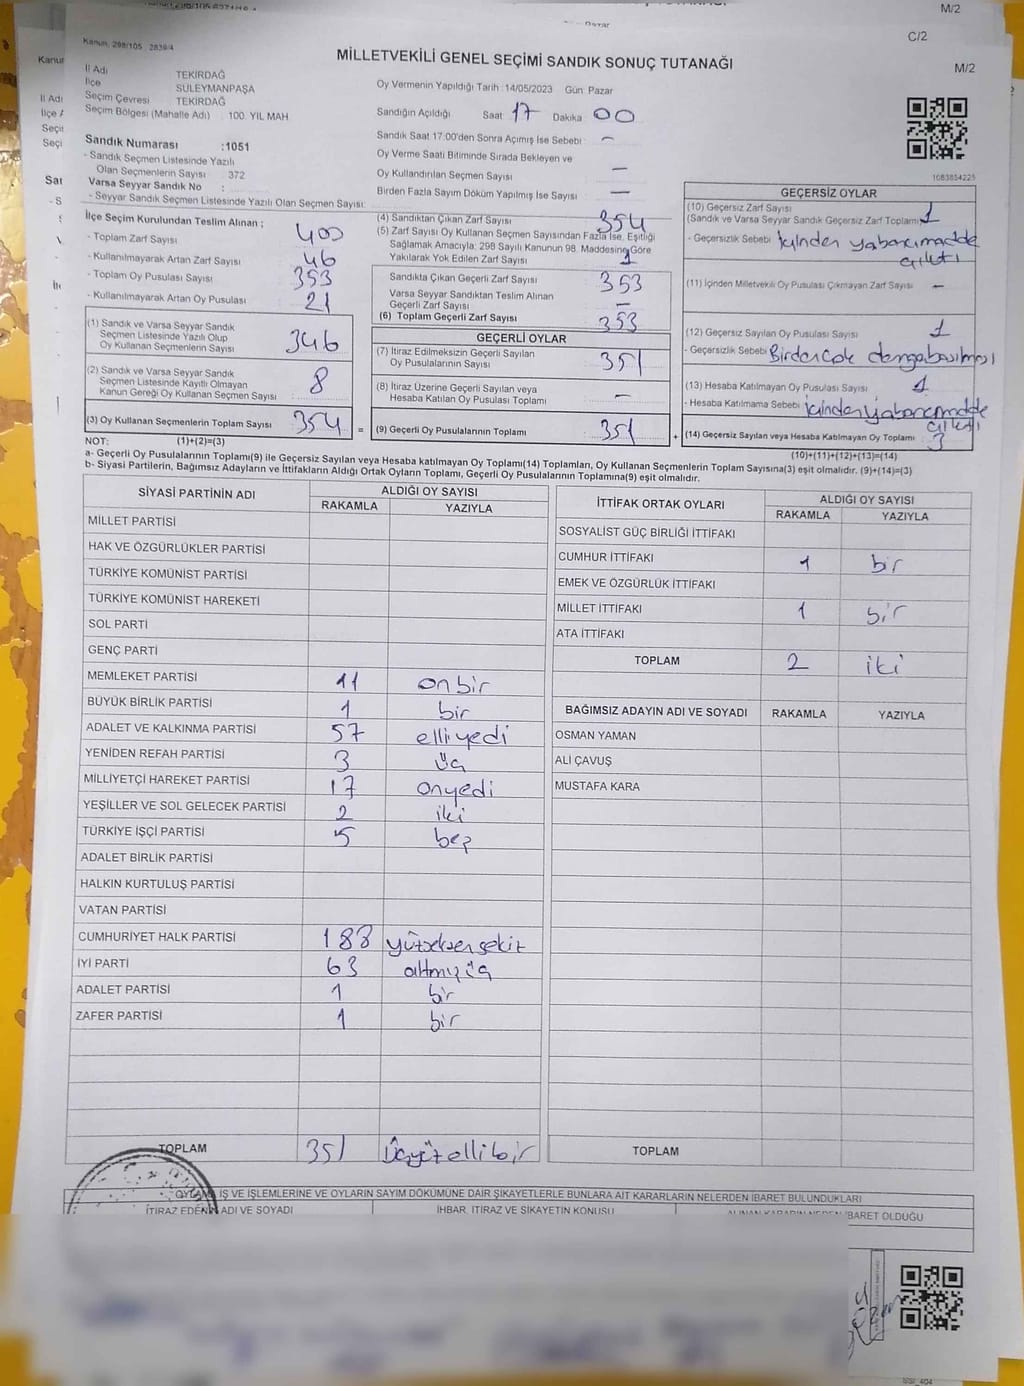 M/2
C/2
M/2
Kanun: 298/105 2839/4
MİLLETVEKİLİ GENEL SEÇİMİ SANDIK SONUÇ TUTANAĞI
İl Adı TEKİRDAĞ
İlçe SÜLEYMANPAŞA
Seçim Çevresi TEKİRDAĞ
Seçim Bölgesi (Mahalle Adı) : 100. YIL MAH.
Sandık Numarası :1051
- Sandık Seçmen Listesinde Yazılı
Olan Seçmenlerin Sayısı : 372
Varsa Seyyar Sandık No :
- Seyyar Sandık Seçmen Listesinde Yazılı Olan Seçmen Sayısı:
Oy Vermenin Yapıldığı Tarih :14/05/2023 Gün: Pazar
Sandığın Açıldığı Saat 17 Dakika 00
Sandık Saat 17:00'den Sonra Açılmış İse Sebebi : -
Oy Verme Saati Bitiminde Sırada Bekleyen ve
Oy Kullandırılan Seçmen Sayısı : -
Birden Fazla Sayım Döküm Yapılmış İse Sayısı : -
1083854225
İlçe Seçim Kurulundan Teslim Alınan ;
- Toplam Zarf Sayısı : 400
- Kullanılmayarak Artan Zarf Sayısı : 46
- Toplam Oy Pusulası Sayısı : 353
- Kullanılmayarak Artan Oy Pusulası : 21
(1) Sandık ve Varsa Seyyar Sandık
Seçmen Listesinde Yazılı Olup
Oy Kullanan Seçmenlerin Sayısı : 346
(2) Sandık ve Varsa Seyyar Sandık
Seçmen Listesinde Kayıtlı Olmayan
Kanun Gereği Oy Kullanan Seçmen Sayısı : 8
(3) Oy Kullanan Seçmenlerin Toplam Sayısı : 354 =
(4) Sandıktan Çıkan Zarf Sayısı : 354
(5) Zarf Sayısı Oy Kullanan Seçmen Sayısından Fazla İse, Eşitliği
Sağlamak Amacıyla; 298 Sayılı Kanunun 98. Maddesine Göre
Yakılarak Yok Edilen Zarf Sayısı : 1
Sandıkta Çıkan Geçerli Zarf Sayısı : 353
Varsa Seyyar Sandıktan Teslim Alınan
Geçerli Zarf Sayısı : -
(6) Toplam Geçerli Zarf Sayısı : 353
GEÇERLİ OYLAR
(7) İtiraz Edilmeksizin Geçerli Sayılan
Oy Pusulalarının Sayısı : 351
(8) İtiraz Üzerine Geçerli Sayılan veya
Hesaba Katılan Oy Pusulası Toplamı : -
(9) Geçerli Oy Pusulalarının Toplamı : 351 +
GEÇERSİZ OYLAR
(10) Geçersiz Zarf Sayısı
(Sandık ve Varsa Seyyar Sandık Geçersiz Zarf Toplamı) : 1
- Geçersizlik Sebebi : İçinden yabancı madde
çıktı
(11) İçinden Milletvekili Oy Pusulası Çıkmayan Zarf Sayısı : -
(12) Geçersiz Sayılan Oy Pusulası Sayısı : 1
- Geçersizlik Sebebi : Birden çok damga basılması
(13) Hesaba Katılmayan Oy Pusulası Sayısı : 1
- Hesaba Katılmama Sebebi : içinden yabancı madde
çıktı
(14) Geçersiz Sayılan veya Hesaba Katılmayan Oy Toplamı : 3
NOT: (1)+(2)=(3)
(10)+(11)+(12)+(13)=(14)
a- Geçerli Oy Pusulalarının Toplamı(9) ile Geçersiz Sayılan veya Hesaba katılmayan Oy Toplamı(14) Toplamları, Oy Kullanan Seçmenlerin Toplam Sayısına(3) eşit olmalıdır. (9)+(14)=(3)
b- Siyasi Partilerin, Bağımsız Adayların ve İttifakların Aldığı Ortak Oyların Toplamı, Geçerli Oy Pusulalarının Toplamına(9) eşit olmalıdır.
SİYASİ PARTİNİN ADI ALDIĞI OY SAYISI
RAKAMLA YAZIYLA
MİLLET PARTİSİ
HAK VE ÖZGÜRLÜKLER PARTİSİ
TÜRKİYE KOMÜNİST PARTİSİ
TÜRKİYE KOMÜNİST HAREKETİ
SOL PARTİ
GENÇ PARTİ
MEMLEKET PARTİSİ 11 onbir
BÜYÜK BİRLİK PARTİSİ 1 bir
ADALET VE KALKINMA PARTİSİ 57 elli yedi
YENİDEN REFAH PARTİSİ 3 üç
MİLLİYETÇİ HAREKET PARTİSİ 17 onyedi
YEŞİLLER VE SOL GELECEK PARTİSİ 2 iki
TÜRKİYE İŞÇİ PARTİSİ 5 beş
ADALET BİRLİK PARTİSİ
HALKIN KURTULUŞ PARTİSİ
VATAN PARTİSİ
CUMHURİYET HALK PARTİSİ 188 yüzseksensekiz
İYİ PARTİ 63 altmışüç
ADALET PARTİSİ 1 bir
ZAFER PARTİSİ 1 bir
TOPLAM 351 Üçyüzellibir
İTTİFAK ORTAK OYLARI ALDIĞI OY SAYISI
RAKAMLA YAZIYLA
SOSYALİST GÜÇ BİRLİĞİ İTTİFAKI
CUMHUR İTTİFAKI 1 bir
EMEK VE ÖZGÜRLÜK İTTİFAKI
MİLLET İTTİFAKI 1 bir
ATA İTTİFAKI
TOPLAM 2 iki
BAĞIMSIZ ADAYIN ADI VE SOYADI RAKAMLA YAZIYLA
OSMAN YAMAN
ALİ ÇAVUŞ
MUSTAFA KARA
TOPLAM
İŞ VE İŞLEMLERİNE VE OYLARIN SAYIM DÖKÜMÜNE DAİR ŞİKAYETLERLE BUNLARA AİT KARARLARIN NELERDEN İBARET BULUNDUKLARI
İTİRAZ EDENİN ADI VE SOYADI İHBAR, İTİRAZ VE ŞİKAYETİN KONUSU ALINAN KARARIN NEDEN İBARET OLDUĞU